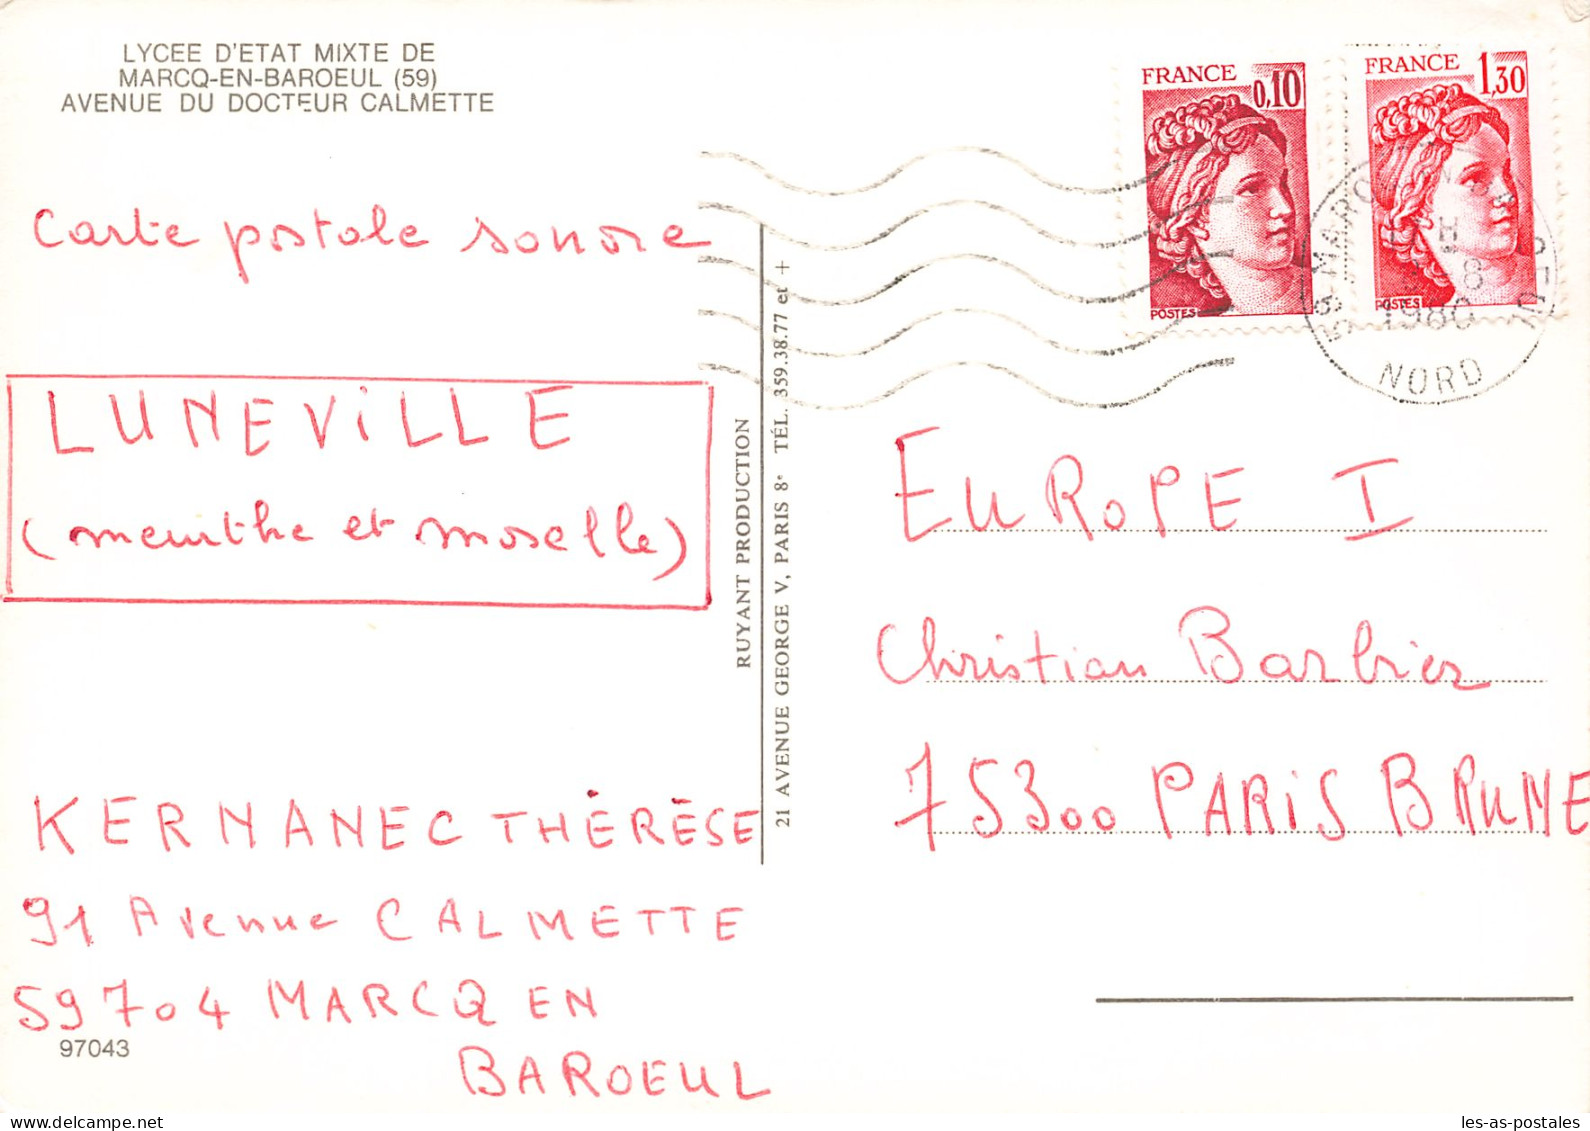 LYCEE D'ETAT MIXTE DE
MARCQ-EN-BAROEUL (59)
AVENUE DU DOCTEUR CALMETTE
Carte postale sonore
LUNEViLLE
(meurthe et moselle)
KERNANEC THÉRÈSE
91 Avenue CALMETTE
59704 MARCQ EN
BAROEUL
97043
RUYANT PRODUCTION
21 AVENUE GEORGE V, PARIS 8e TÉL. 359.38.77 et +
FRANCE 0,10
POSTES
FRANCE 1,30
POSTES
59 MARCQ
1980
NORD
EUROPE I
Christian Barbier
75300 PARiS BRUNE
les-as-postales.com